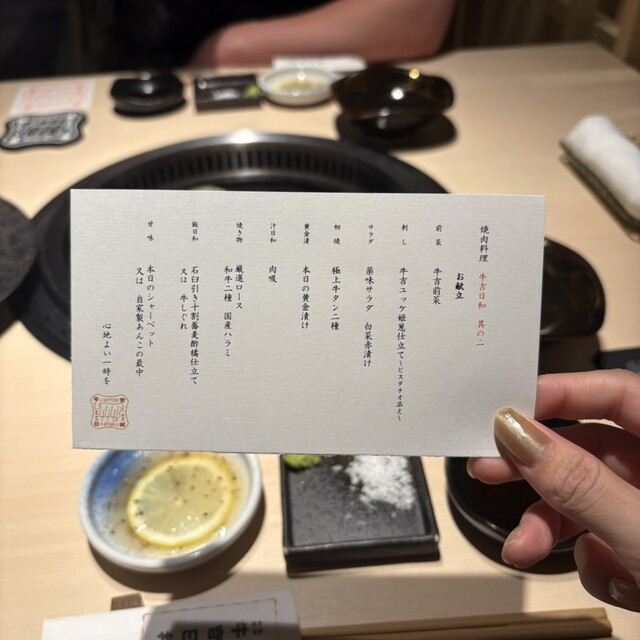 焼肉料理 牛吉日和 其の二
お献立
前菜 牛吉前菜
刺し 牛吉ユッケ姫葱仕立て〜ピスタチオ添え〜
サラダ 薬味サラダ 白菜赤漬け
初焼 極上牛タン二種
黄金漬 本日の黄金漬け
汁日和 肉吸
焼き物 厳選ロース
和牛二種 国産ハラミ
飯日和 石臼引き十割蕎麦酢橘仕立て
又は 牛しぐれ
甘味 本日のシャーベット
又は 自家製あんこの最中
心地よい一時を